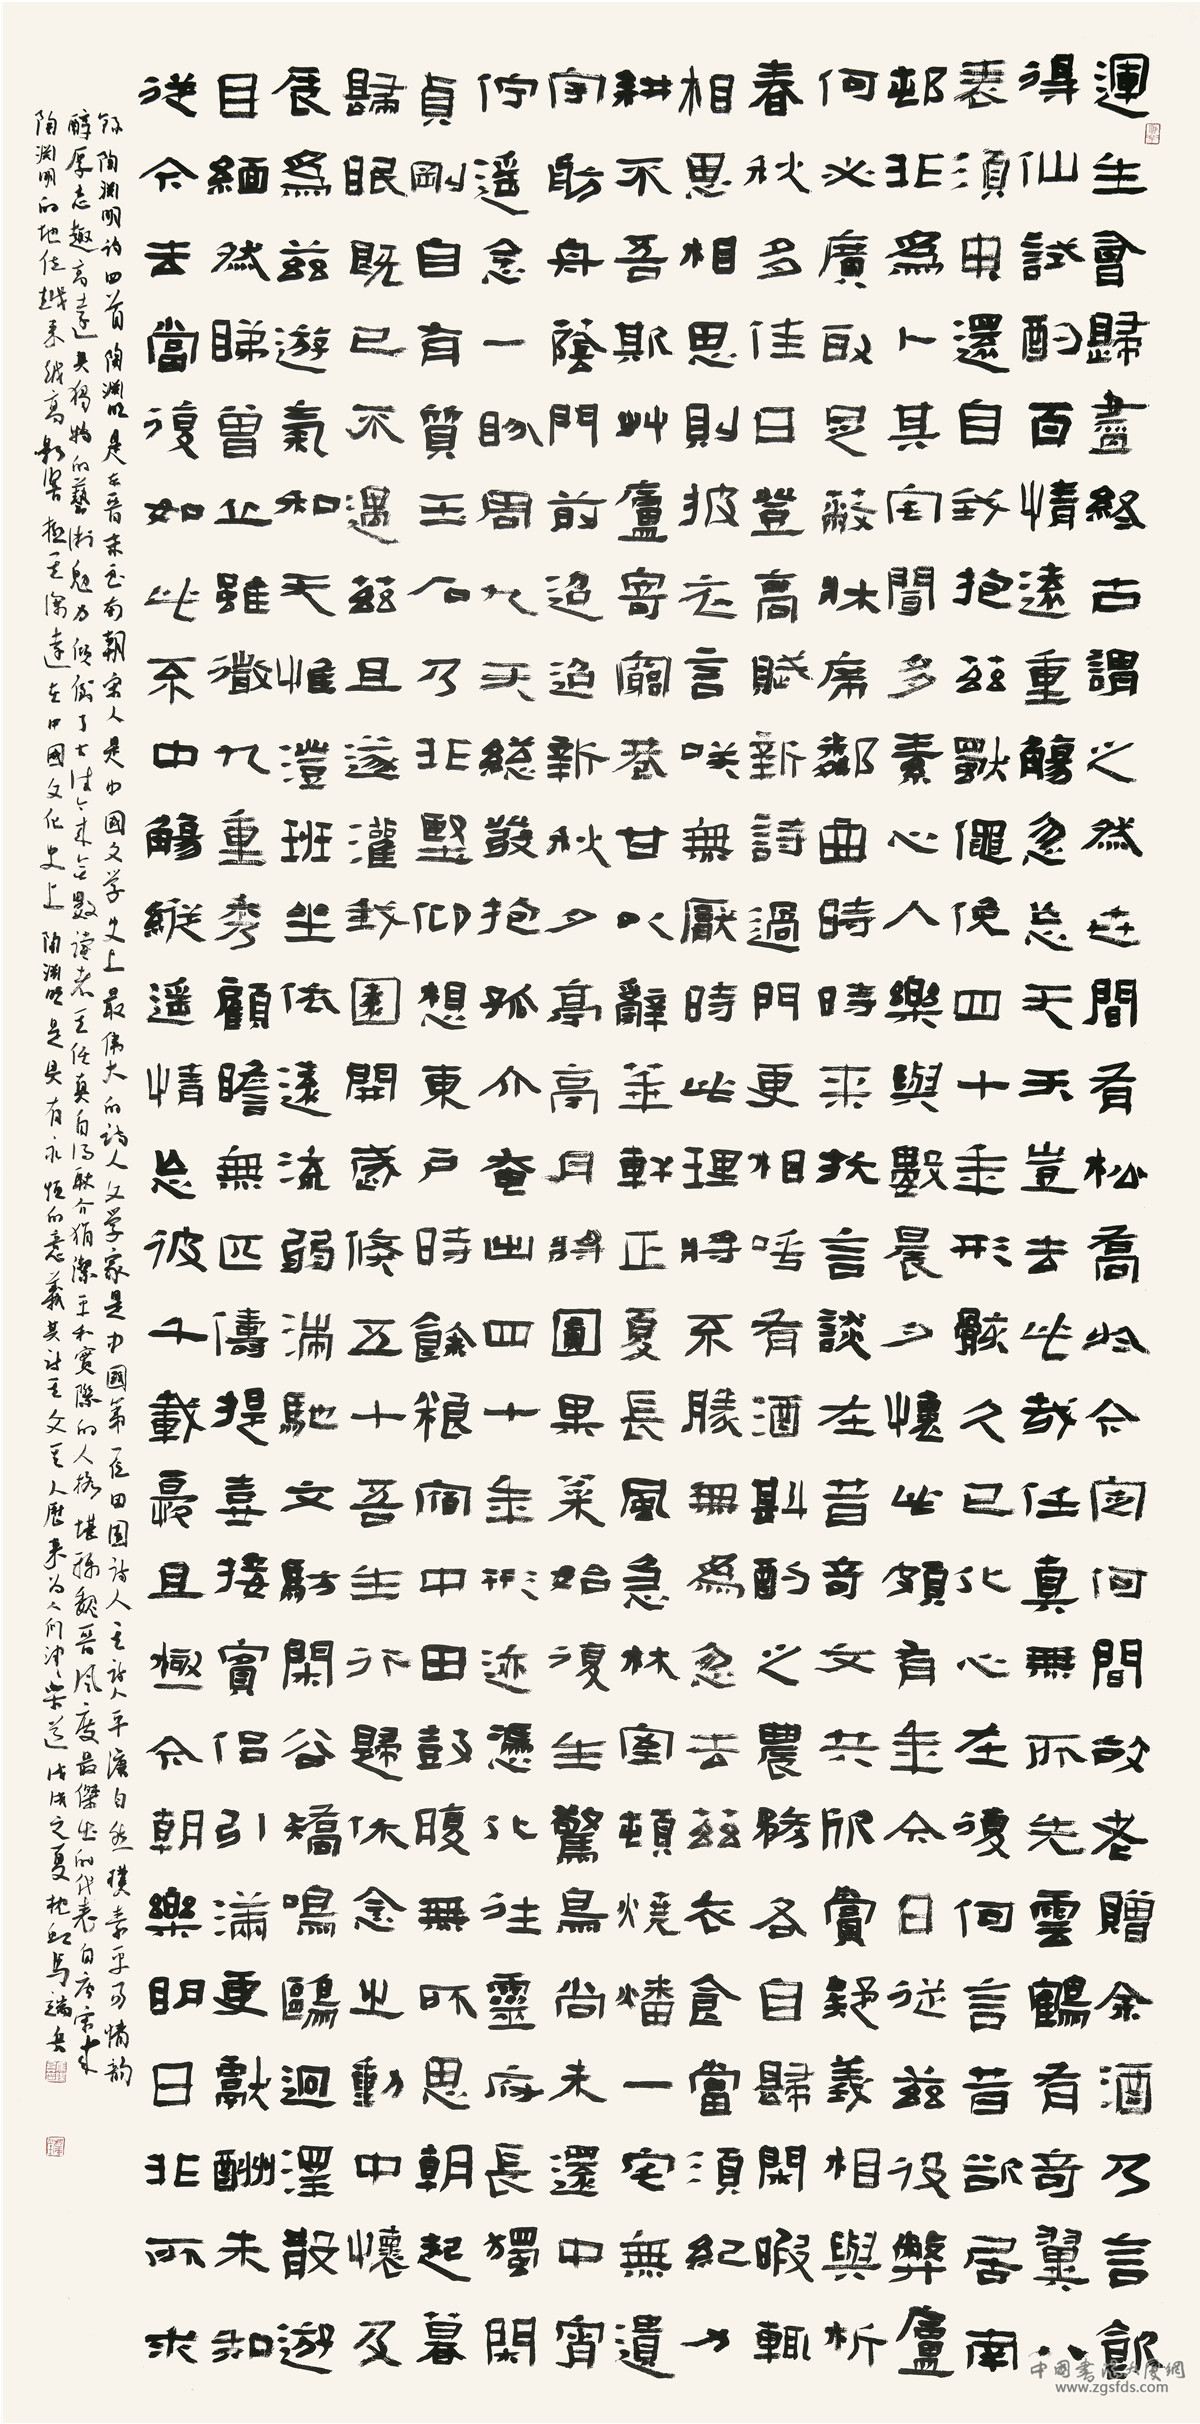 運生會歸盡終古謂之然世間有松喬於今定何間故老贈余酒乃言飲
得仙試酌百情遠重觴忽忘天天豈去此哉任真無所先雲鶴有奇翼八
表須臾還自我抱茲獨僶俛四十年形骸久已化心在復何言昔欲居南
邨非為卜其宅聞多素心人樂與數晨夕懷此頗有年今日從茲役弊廬
何必廣取足蔽牀席鄰曲時時來抗言談在昔奇文共欣賞疑義相與析
春秋多佳日登高賦新詩過門更相呼有酒斟酌之農務各自歸閑暇輒
相思相思則披衣言笑無厭時此理將不勝無為忽去茲衣食當須紀力
耕不吾斯艸廬寄窮巷甘以辭華軒正夏長風急林室頓燒燔一宅無遺
宇舫舟蔭門前迢迢新秋夕亭亭月將圓果菜始復生驚鳥尚未還中宵
佇遥念一盼周九天總髮抱孤介奄出四十年形迹憑化往靈府長獨閑
貞剛自有質玉石乃非堅仰想東戶時餘粮宿中田鼓腹無所思朝起暮
歸眠既已不遇茲且遂灌我園開歲倏五十吾生行歸休念之動中懷及
辰為茲遊氣和天惟澄班坐依遠流弱湍馳文魴閑谷矯鳴鷗迥澤散游
目緬然睇曾丘雖微九重秀顧瞻無匹儔提壺接賓侶引滿更獻酬未知
從今去當復如此不中觴縱遥情忘彼千載憂且極今朝樂明日非所求
錄陶淵明詩四首 陶淵明是东晉末至南朝宋人是中國文学史上最偉大的詩人文学家是中國第一位田園詩人其詩平淡自然樸素平易情韵
醇厚志趣高遠具獨特的藝術魅力傾倒了古往今来無數讀者其任真自得耿介狷潔平和實際的人格堪稱魏晉風度最傑出的代表自唐宋以来
陶淵明的地位越来越高影响極其深遠在中國文化史上陶淵明是具有永恒的意義其詩其文其人歷来为人们津津樂道戊戌之夏馬
中国书法大厦網
www.zgsfds.com